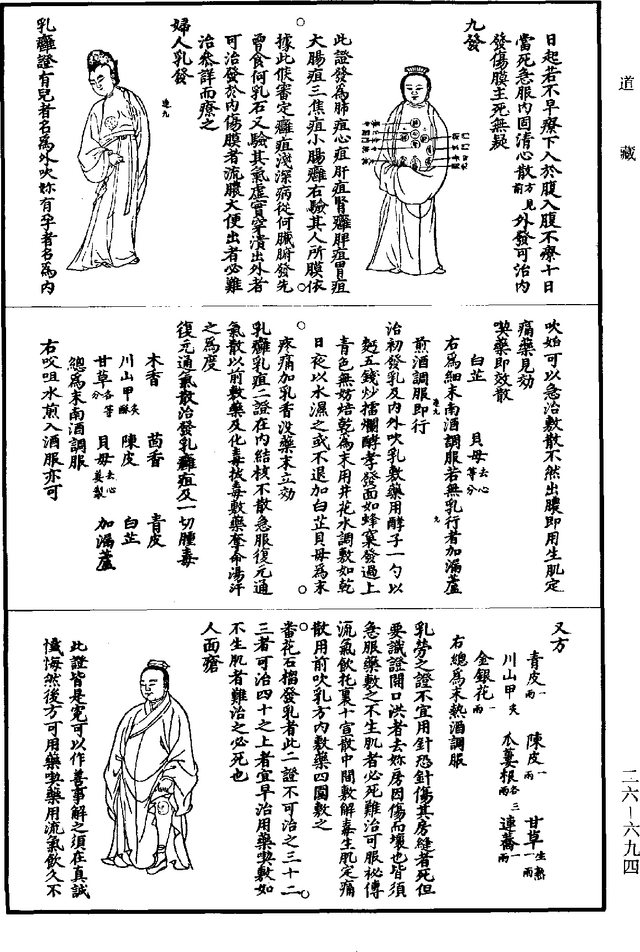 道藏
日起若不早療下入於腹入腹不療十日
當死急服內固清心散方見前外發可治內
發傷膜主死無疑
九發
此證發為肺疽心疽肝疽腎癰脾疽胃疽
大腸疽三焦疽小腸癰右驗其人所膜依
據此候審定癰疽淺深病從何臟腑發先
曾食何乳石又驗其氣虛實穿潰出外者
可治發於內傷膜者流膿大便出者必難
治參詳而療之
婦人乳發
逸九
乳癰證有兒者名為外吹妳有孕者名為內
吹妳可以急治敷散不然出膿即用生肌定
痛藥見効
喫藥即效散
白芷 貝母去心等分
右為細末南酒調服若無乳行者加漏蘆
煎酒調服即行
逸九 九
治初發乳及內外吹乳敷藥用酵子一勺以
麪五錢炒擂爛酵孝發面如蜂窠發過上
青色無妨焙乾為末用井花水調敷如乾
日夜以水濕之或不退加白芷貝母為末
疼痛加乳香沒藥末立効
乳癰乳疽二證在內結核不散急服復元通
氣散以前敷藥及化毒拔毒敷藥奪命湯汗
之為度
復元通氣散治發乳癰疽及一切腫毒
木香 茴香 青皮
川山甲炙酥 陳皮 白芷
甘草各等分 貝母去心薑製 加漏蘆
總為末南酒調服
右㕮咀水煎入酒服亦可
又方
青皮一兩 陳皮一兩 甘草生一兩熟一兩
川山甲炙 瓜蔞根各三兩 連蕎一兩
金銀花一兩
右總為末熱酒調服
乳勞之證不宜用針恐針傷其房縫者死但
要識證開口洪者去妳房因傷而壞也皆須
急服藥敷之不生肌者必死難治可服祕傳
流氣飲托裏十宣散中間敷解毒生肌定痛
散用前吹乳方內敷藥四圍敷之
番花石榴發乳者此二證不可治之三十二
三者可治四十之上者宜早治用藥喫敷如
不生肌者難治之必死也
人面瘡
此證皆是寃可以作善事解之須在真誠
懺悔然後方可用藥喫藥用流氣飲久不
二六—六九四